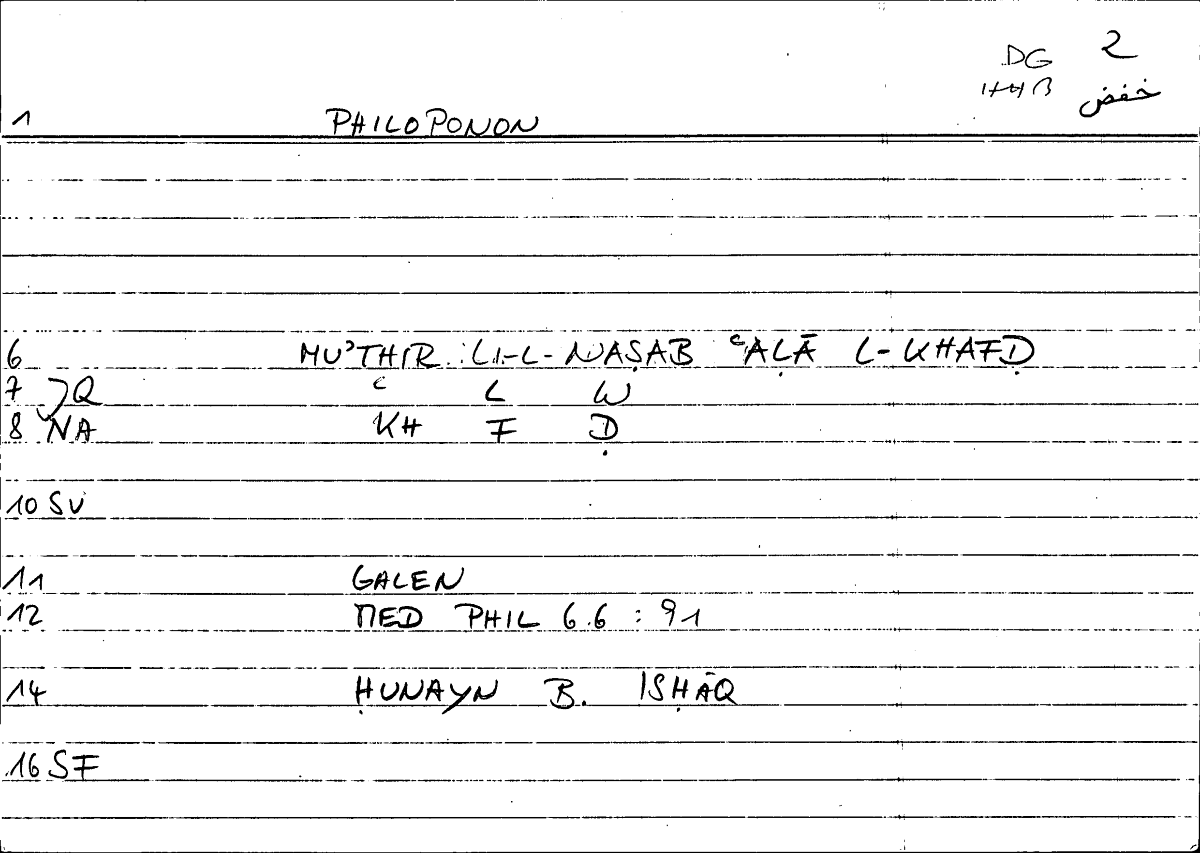 DG 2
HHB خفض
1 PHILOPONON
6 MUʾTHIR LI-L-NAṢAB ʿALĀ L-KHAFḌ
7 JQ ʿ L W
8 NA KH F Ḍ
10 SV
11 GALEN
12 MED PHIL 6.6 : 91
14 ḤUNAYN B. ISḤĀQ
16 SF